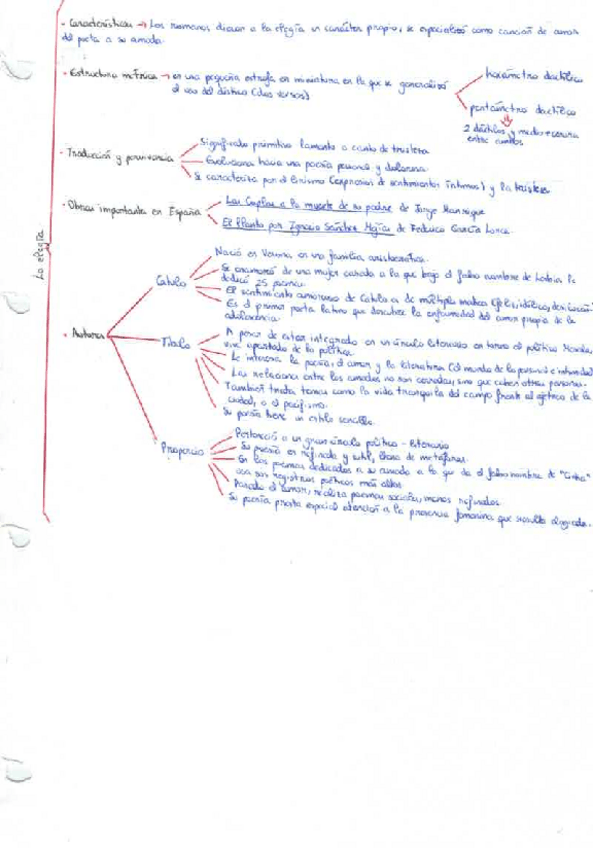 La elegía
- Características → Los romanos dieron a la elegía un carácter propio, se especializó como canción de amor
del poeta a su amada.
- Estructura métrica → en una pequeña estrofa en miniatura en la que se generalizó
el uso del dístico (dos versos)
hexámetro dactílico
pentámetro dactílico
2 dáctilos y medio + cesura
entre ambos
- Tradición y pervivencia
Significado primitivo lamento o canto de tristeza
Evoluciona hacia una poesía personal y
Se caracteriza por el lirismo (expresión de sentimientos íntimos) y la tristeza
- Obras importantes en España
Las Coplas a la muerte de su padre de Jorge Manrique
El llanto por Ignacio Sánchez Mejías de Federico García Lorca
- Autores
Catulo
Nació en Verona, en una familia aristocrática.
Se enamoró de una mujer casada a la que bajo el falso nombre de Lesbia le
dedicó 25 poemas.
El sentimiento amoroso de Catulo es de múltiples matices
Es el primer poeta latino que describe la enfermedad del amor propia de la
adolescencia.
Tibulo
A pesar de estar integrado en un círculo literario en torno al político Mesala,
vive apartado de la política.
Le interesa la poesía, el amor y la literatura (el mundo de la personal e intimidad)
Las relaciones entre los amados no son cerradas, sino que caben otras personas.
También trata temas como la vida tranquila del campo frente al ajetreo de la
ciudad, o el pacifismo.
Su poesía tiene un estilo sencillo.
Propercio
Perteneció a un gran círculo político - literario
Su poesía es refinada y sutil, llena de metáforas.
En los poemas dedicados a su amada a la que da el falso nombre de "Cintia"
usa son registros poéticos más altos
Pasado el amor, realiza poemas sociales, menos refinados.
Su poesía presta especial atención a la presencia femenina que resulta